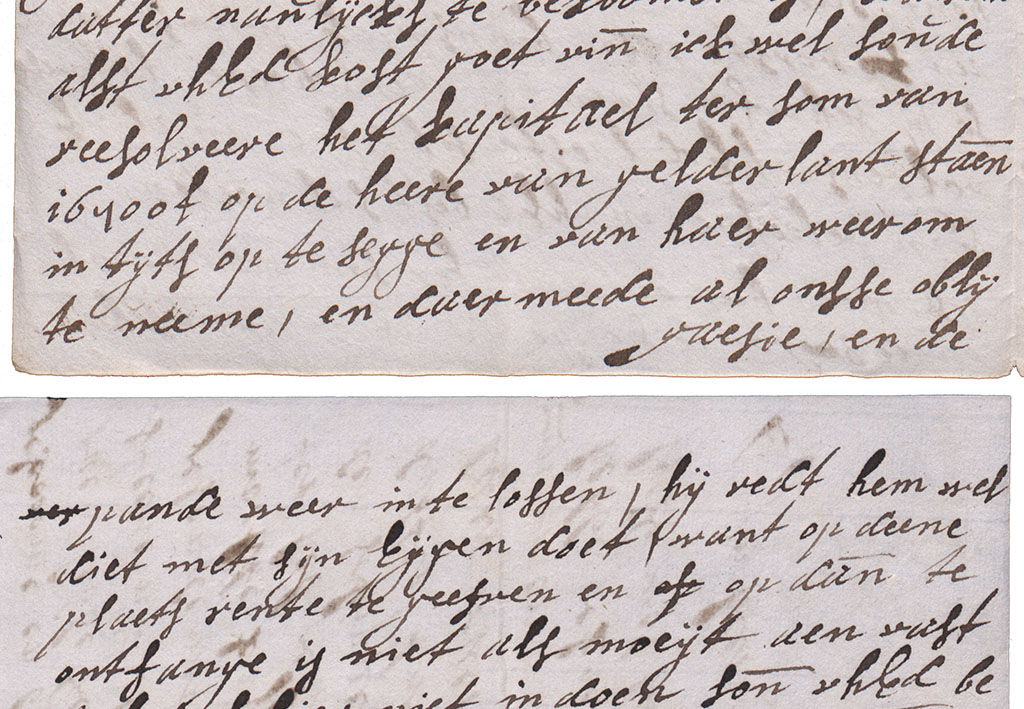 datter naulijckx te bekoomen
alst uhEd kost goet vin̅ ick wel soude
reesolveere het kapitael ter som van
16400 f op de heere van gelderlant staen
in tijts op te segge en van haer weerom
te neeme, en daer meede al onsse oblij
gaesie, en de
pande weer in te lossen, hij redt hem wel
diet met sijn Eijgen doet, want op deene
plaets rente te geefven en op dan̅ te
ontfange is niet als moeijt aen vast
niet in doen son̅ uhEd be